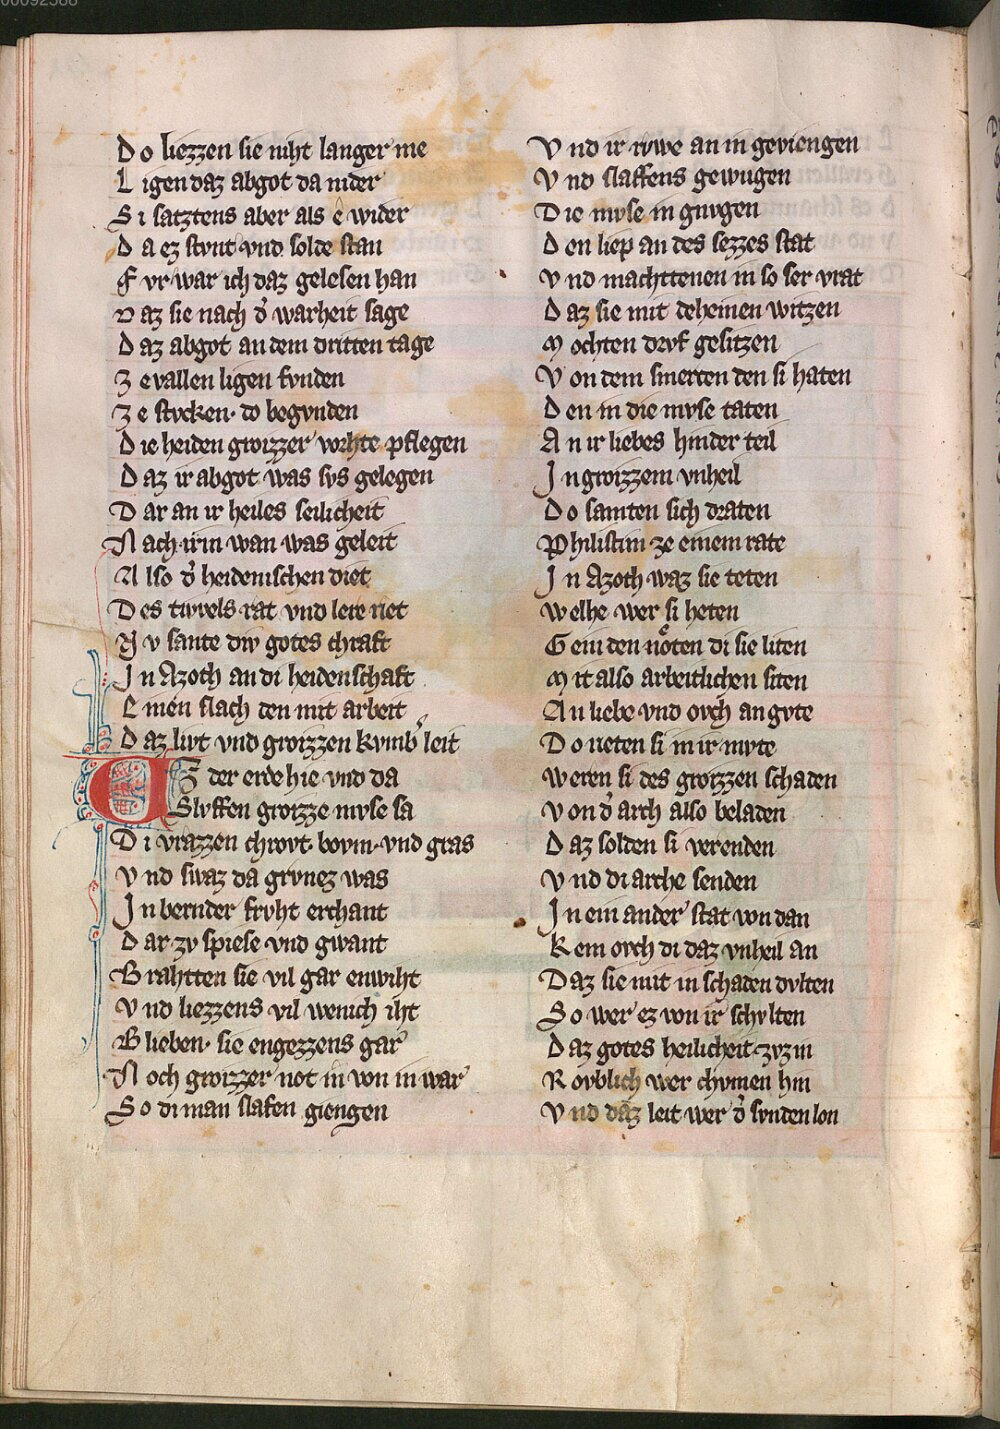 00092588
Do liezzen sie niht langer me
Ligen daz abgot da nider
Si satztens aber als ê wider
Da ez stvnt vnd solde stan
Fvr war ich daz gelesen han
Daz sie nach d̾ warheit sage
Daz abgot an dem dritten tage
Zevallen ligen fvnden
Ze stvcken· do begvnden
Die heiden groizzer vorhte pflegen
Daz ir abgot was svs gelegen
Dar an ir heiles seilicheit
Nach irm wan was geleit
Also d̾ heidenischen diet
Des tivvels rat vnd lere riet
Nv sante div gotes chraft
In Azoch an di heidenschaft
Einen slach den mit arbeit
Daz livt vnd groizzen kvmb̾ leit
Vz der erde hie vnd da
Slvffen groizze mvse sa
Di vrazzen chrovt· bovm· vnd gras
Vnd swaz da grvnez was
In bernder frvht erchant
Dar zv spiese vnd gwant
Brahtten sie vil gar enwiht
Vnd liezzens vil wenich iht
Blieben· sie engezzens gar
Noch groizzer not in von in war
So di man slafen giengen
Vnd ir rvwe an in geviengen
Vnd slaffens gewugen
Die mvse in gnvgen
Den liep an des sezzes stat
Vnd machttenen in so ser vrat
Daz sie mit deheinen witzen
Mochten drvf gesitzen
Von dem smerten den si haten
Den in die mvse taten
An ir liebes hinder teil
In groizzem vnheil
Do samten sich draten
Philistim ze einem rate
In Azoch waz sie teten
Welhe wer si heten
Gein den nöten di sie liten
Mit also arbeitlichen siten
An liebe vnd ovch an gvte
Do rieten si in ir mvte
Weren si des groizzen schaden
Von d̾ arch also beladen
Daz solden si verenden
Vnd di arche senden
In ein ander stat von dan
Kem ovch di daz vnheil an
Daz sie mit in schaden dvlten
So wer ez von ir schvlten
Daz gotes heilicheit zvz in
Royblich wer chvmen hin
Vnd daz leit wer d̾ svnden lon